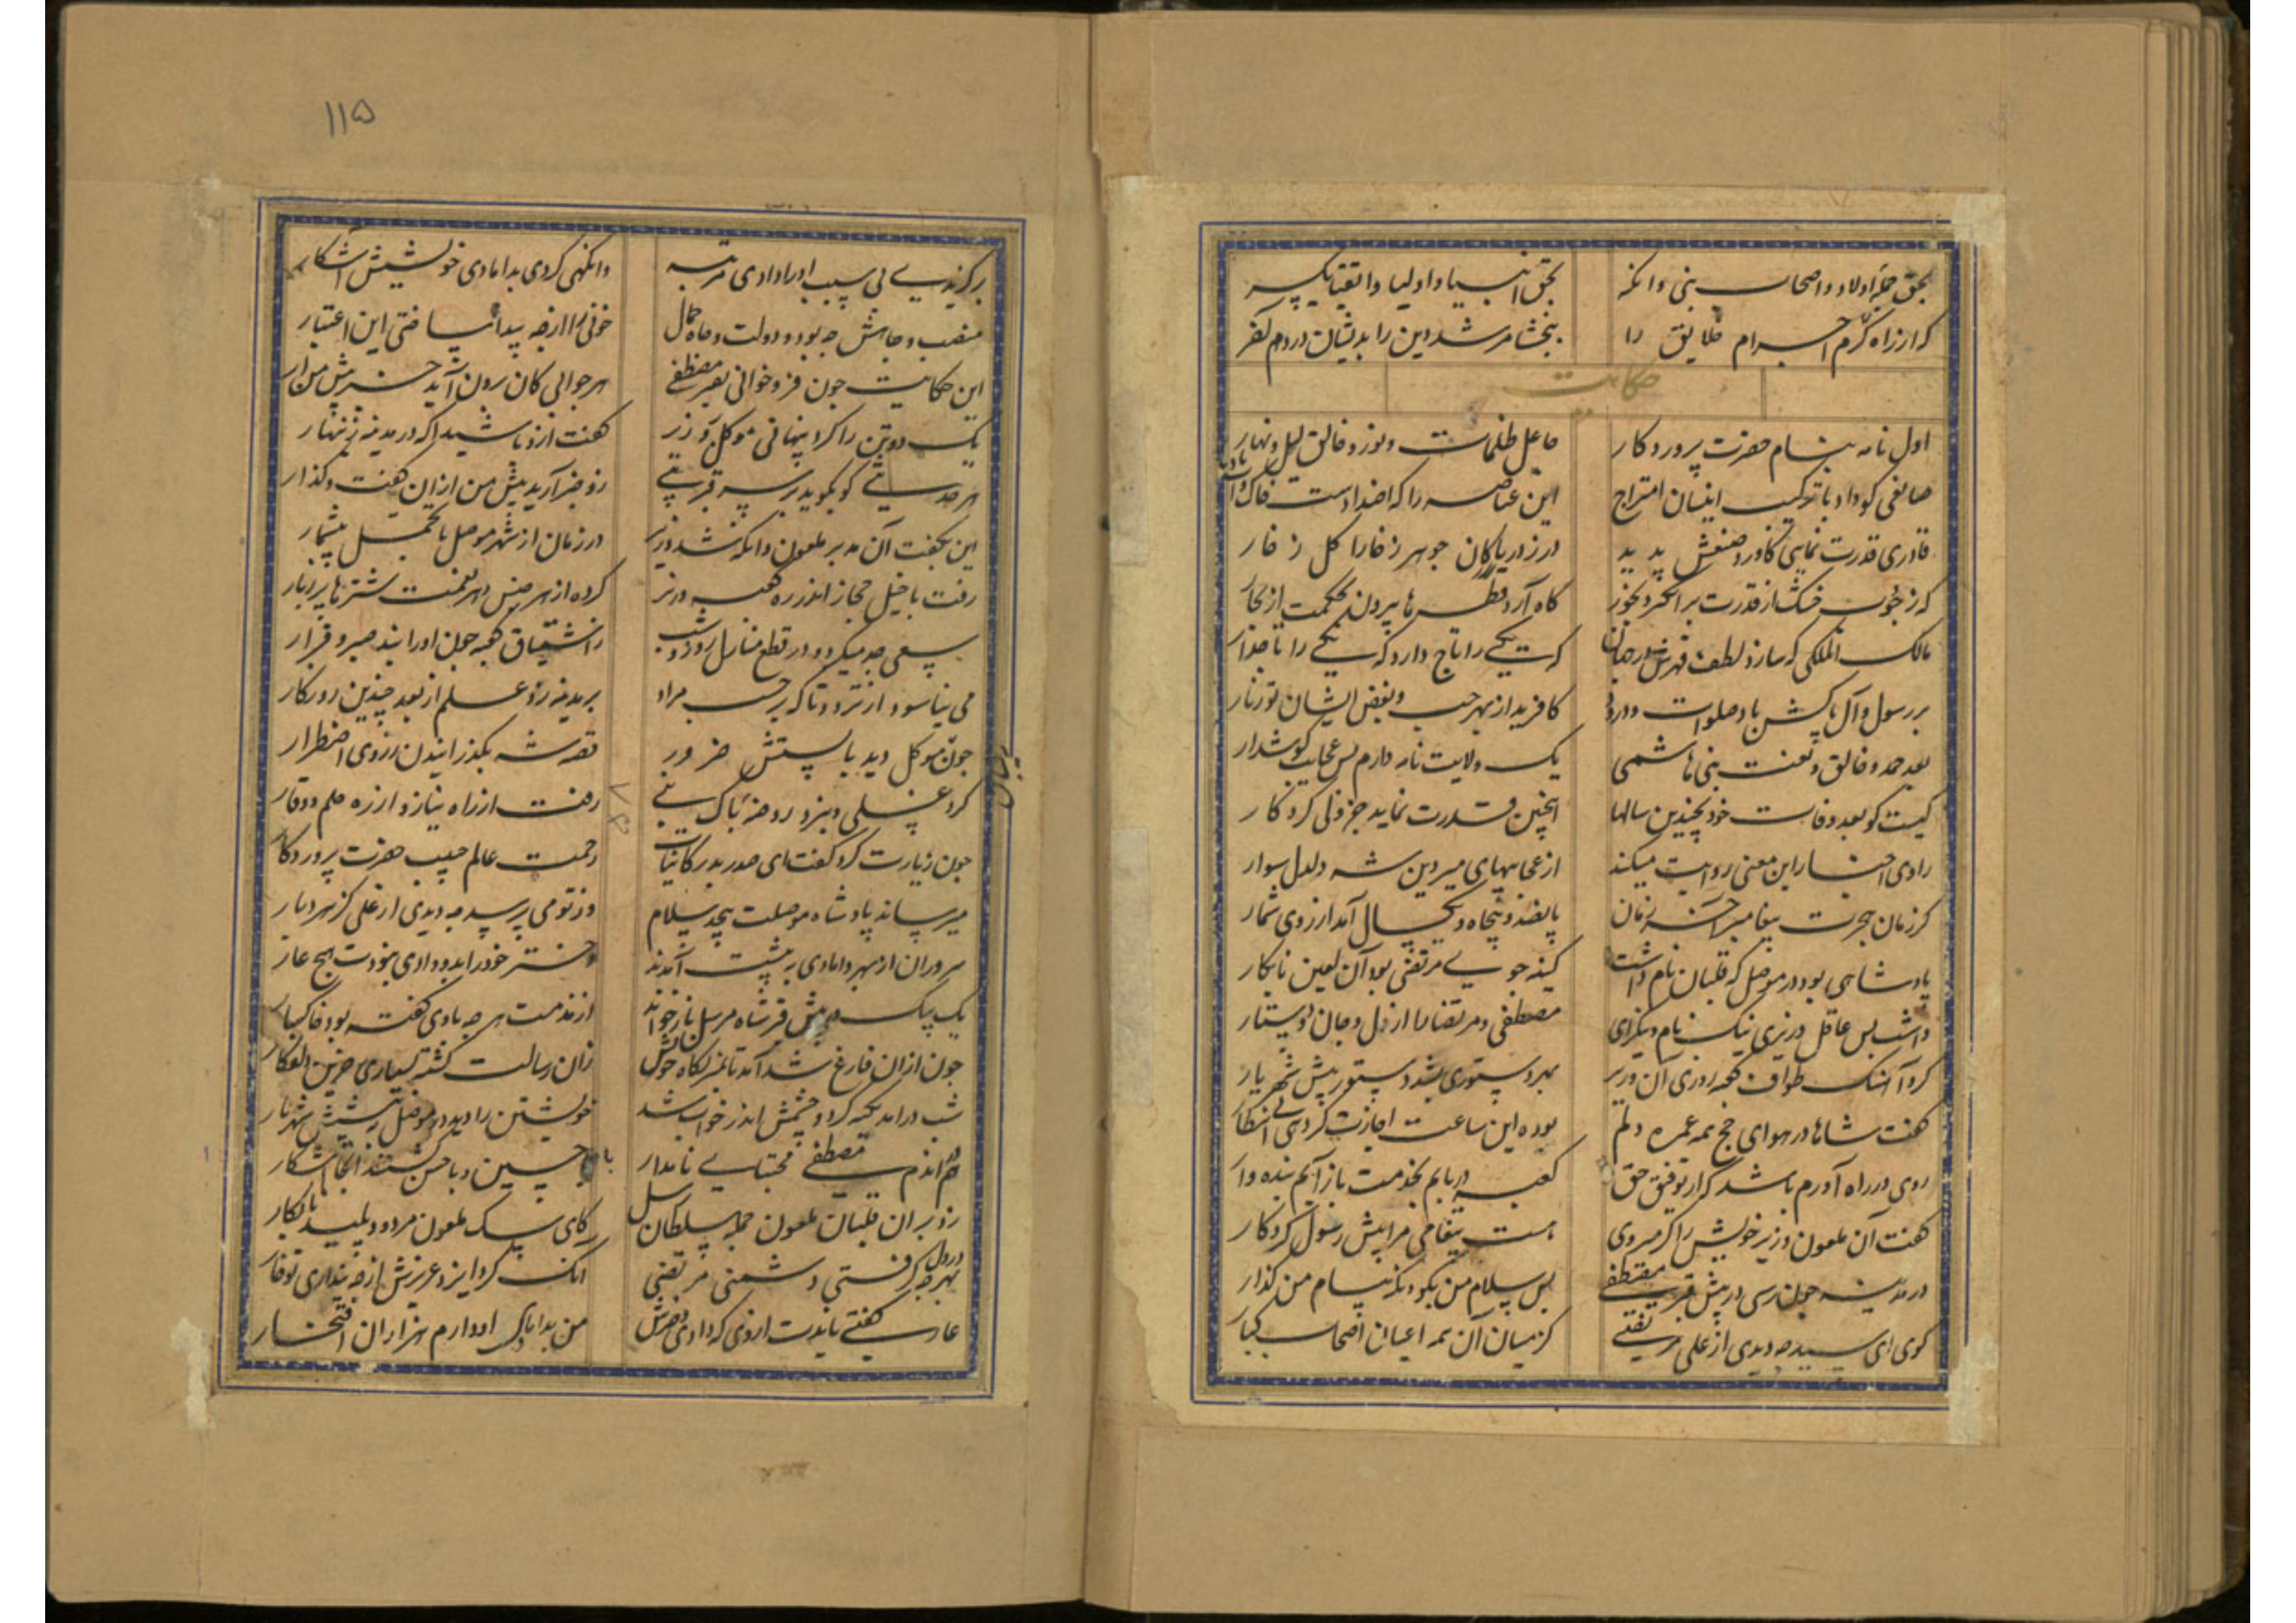 بحق جمله اولاد و اصحاب نبی وانکه بحق انبیا و اولیا و اتقیا یکسر
که از راه کرم اجرام خلایق را ببخشا مرشدین را بدیشان در دم آخر
حکایت
اول نامه بنام حضرت پروردکار جاعل ظلمات و نور و خالق لیل و نهار
صانعی کو داد با ترکیب انسان امتزاج این عناصر را که اضدادست خاک و آب و باد و نار
قادری قدرت نمایی کاورد صنعش پدید در ز دریا کان جوهر ز خارا کل ز خار
که ز جوب خشک از قدرت بر اخکر و بخور کاه آرد قطرها بیرون بحکمت از بخار
مالک الملکی که سازد لطف و قهرش در جهان که یکی را تاج دارد که یکی را تاجدار
بر رسول و آل پاکش باد صلوات و درود کافرید از بهر حب و بغض ایشان نور و نار
بعد حمد خالق و نعت نبی هاشمی یک ولایت نامه دارم بس عجایب کوشدار
کیست کو بعد وفات خود بچندین سالها اینچنین قدرت نماید جز ولی کردکار
راوی اخبار این معنی روایت میکند از عجایبهای میر دین شه دلدل سوار
کز زمان هجرت پیغامبر آخر زمان پانصد و پنجاه و یکسال آمد از روی شمار
پادشاهی بود در موصل که قلبان نام داشت کینه جوی مرتضی بود آن لعین نابکار
داشت بس عاقل وزیری نیک نام و نیک رای مصطفی و مرتضا را از دل و جان دوستار
کرد آهنک طواف کعبه روزی آن وزیر بهر دستوری بشد دستور پیش شهریار
کفت شاها در هوای حج همه عمره دلم بوده این ساعت اجازت کر دهی بی انتظار
روی در راه آورم باشد کر از توفیق حق کعبه دریابم بخدمت باز آیم بنده وار
کفت آن ملعون وزیر خویش را کر میروی هست پیغامی مرا پیش رسول کردکار
در مدینه چون رسی در پیش قبر مصطفی پس سلام من بکو وانکه پیام من کذار
کوی ای سید چه دیدی از علی مرتضی کز میان آن همه اعیان اصحاب کبار
۱۱۵
برکزیدی بی سبب او را و دادی مرتبه وانکهی کردی بدامادی خویشش آشکار
منصب و جاهش چه بود و دولت و جاه و جمال خونی را از چه پیدا ساختی این اعتبار
این حکایت چون فرو خوانی بقبر مصطفی هر جوابی کان برون آید خبر پیش من آر
یک دو تن را کرد پنهانی موکل بر وزیر کفت از و باشید آکه در مدینه زینهار
هر حدیثی کو بکوید بر سر قبر نبی رو خبر آرید پیش من از این کفت و کذار
این بکفت آن مدبر ملعون وانکه شد وزیر در زمان از شهر موصل با تجمل بیشمار
رفت با خیل حجاز اندر ره کعبه وزیر کرده از هر جنس و هر نعمت شترها پر ز بار
سعی چه میکرد و در قطع منازل روز و شب ز اشتیاق کعبه چون او را نبد صبر و قرار
می نیاسود از تردد تا که بر حسب مراد بر مدینه زد علم از بعد چندین روزکار
چون موکل دید بایستش ضرور قصه شه بکذرانیدن ز روی اضطرار
کرد غسلی و بنزد روضه پاک نبی رفت از راه نیاز و از ره حلم و وقار
چون زیارت کرد کفت ای صدر بدر کاینات رحمت عالم حبیب حضرت پروردکار
میرساند پادشاه موصلت بیحد سلام وز تو می پرسد چه دیدی از علی کز هر دیار
سروران از بهر دامادی به پیشت آمدند دختر خود را بدو دادی نبودت هیچ عار
یک بیک در پیش قبر شاه مرسل باز خواند از مذمت هر چه با وی کفته بود آن خاکسار
چون از آن فارغ شد آمد تا بمنزلکاه خویش زان رسالت کشته بسیاری حزین و دلفکار
شب درآمد تکیه کرد و چشمش اندر خواب شد خویشتن را دید در موصل به پیش شهریار
هم در اندم مصطفی مجتبای نامدار با حسین و با حسن کشتند آنجا آشکار
زد بر آن قلبان ملعون جمله سلطان رسل کای سک ملعون مردود پلید نابکار
بهر چه در دل کرفتی دشمنی مرتضی آنک کرد ایزد عزیزش از چه پنداری تو خوار
عار کفتی نایدت از وی که دادی دخترش من بداماد او دارم هزاران افتخار